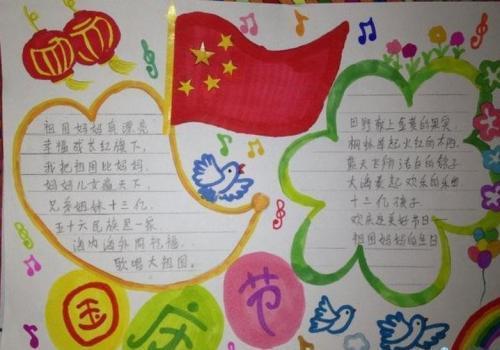 祖国妈妈真漂亮
幸福成长红旗下,
我把祖国比妈妈.
妈妈儿女遍天下,
兄弟姐妹十三亿.
五十六民族是一家
海内海外同祝福.
歌唱大祖国.
田野献上金黄的果实.
枫林举起火红的木牌.
蓝天飞师洁白的鸽子
大海奏起欢乐的乐曲
十三亿孩子
欢庆这美好节日——
祖国妈妈的生日
国庆节